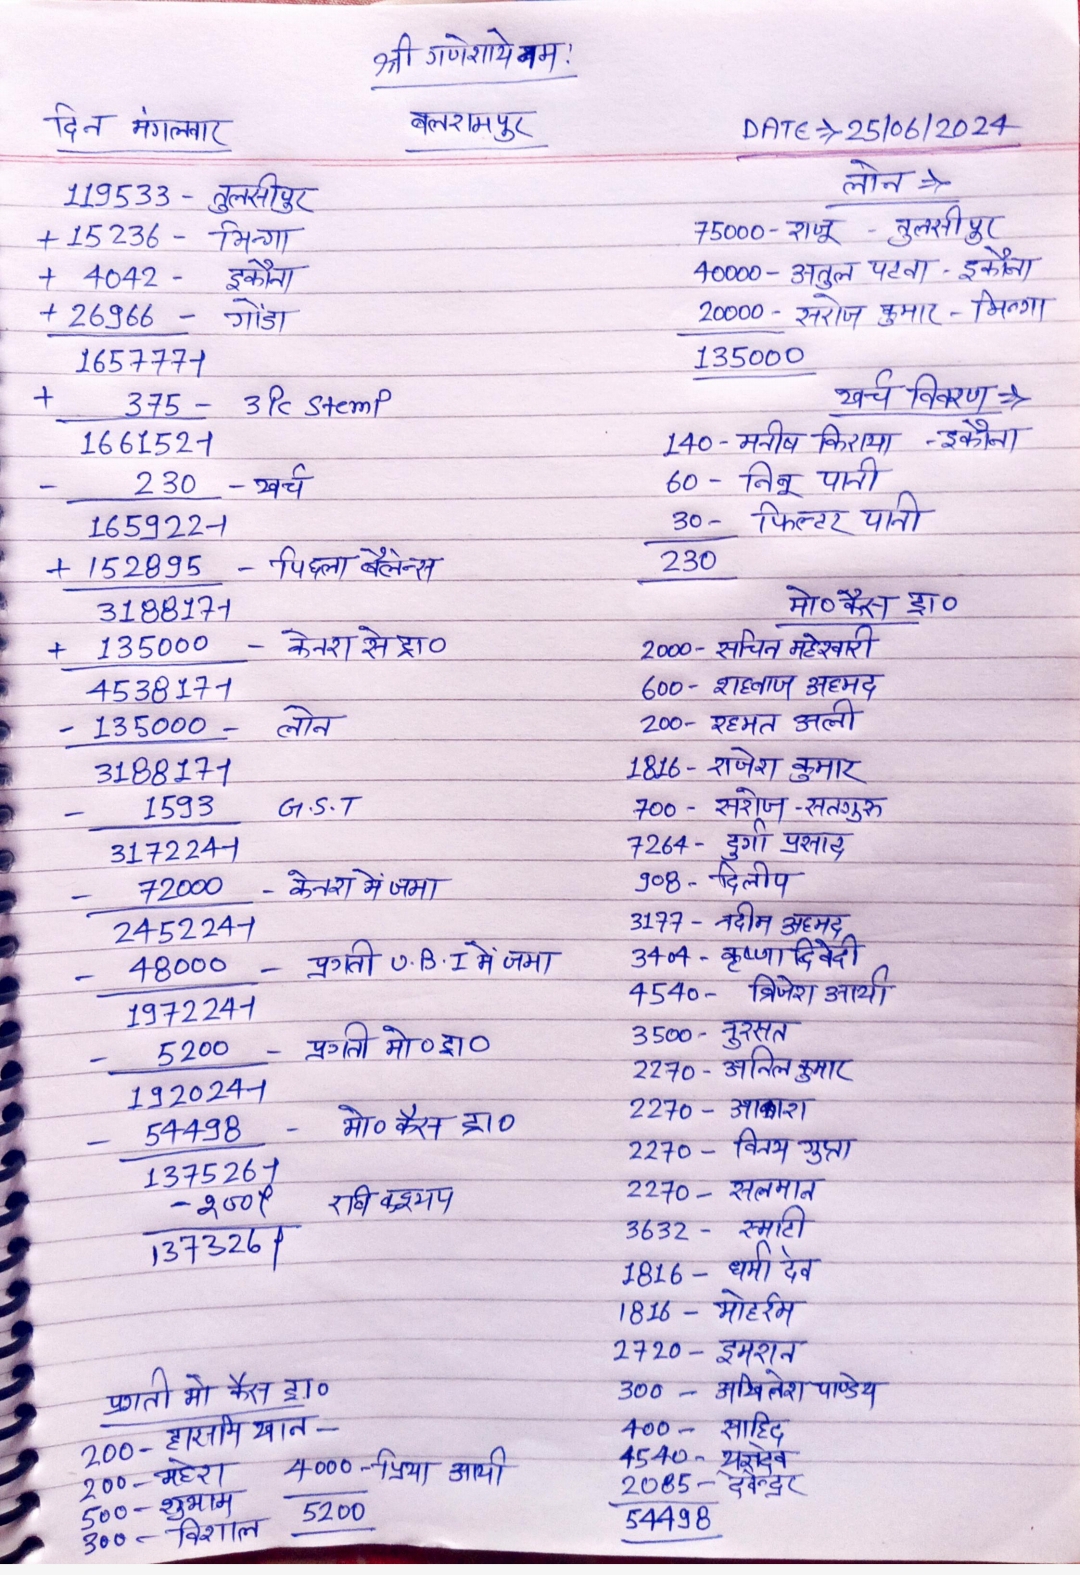 श्री गणेशाये नमः
दिन मंगलवार
बलरामपुर
DATE→25/06/2024
119533 - तुलसीपुर
+ 15236 - भिन्गा
+ 4042 - इकौना
+ 26966 - गोंडा
165777-1
+ 375 - 3 Pc Stemp
166152-1
- 230 - खर्च
165922-1
+ 152895 - पिछ्ला बैलेन्स
318817-1
+ 135000 - केनरा से ड्रा०
453817-1
- 135000 - लोन
318817-1
- 1593 G.S.T
317224-1
- 72000 - केनरा में जमा
245224-1
- 48000 - प्रगती U.B.I में जमा
197224-1
- 5200 - प्रगती मो० ड्रा०
192024-1
- 54498 - मो० कैस ड्रा०
137526-1
- 200/ रवि कश्यप
137326/
लोन →
75000 - राजू - तुलसीपुर
40000 - अतुल पटवा - इकौना
20000 - सरोज कुमार - भिन्गा
135000
खर्च विवरण →
140 - मनीष किराया - इकौना
60 - निबू पानी
30 - फिल्टर पानी
230
मो० कैस ड्रा०
2000 - सचिन महेश्वारी
600 - शहबाज अहमद
200 - रहमत अली
1816 - राजेश कुमार
700 - सरोज - सतगुरु
7264 - दुर्गा प्रसाद
908 - दिलीप
3177 - नदीम अहमद
3404 - कृष्णा दिवेदी
4540 - ब्रिजेश आर्या
3500 - नुरसत
2270 - अनिल कुमार
2270 - आकाश
2270 - विनय गुप्ता
2270 - सलमान
3632 - स्मार्टी
1816 - धर्मा देव
1816 - मोहर्रम
2720 - इमरान
300 - अखिलेश पाण्डेय
400 - साहिद
4540 - यज्ञदेव
2085 - देवेन्द्रर
54498
प्रगती मो कैस ड्रा०
200 - हासमि खान -
200 - महेश
500 - शुभाम
300 - विशाल
4000 - प्रिया आर्या
5200